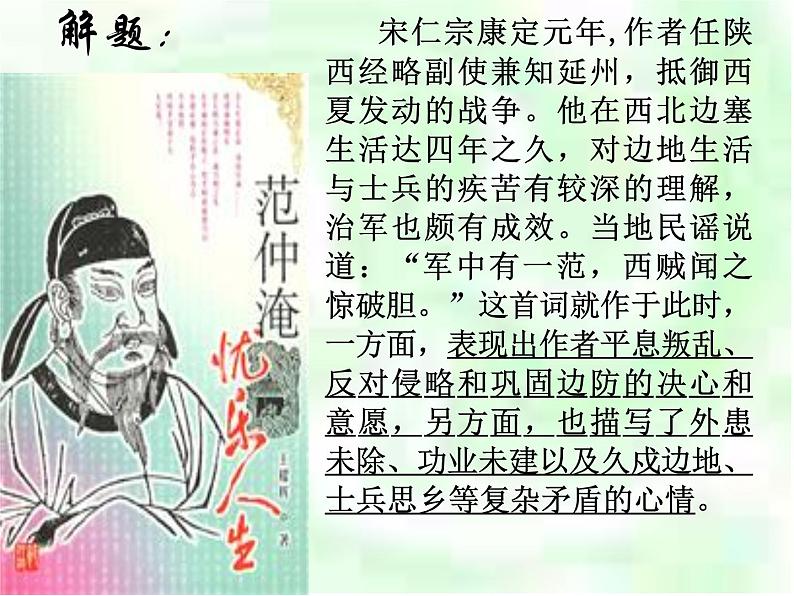 解题：
宋仁宗康定元年,作者任陕
西经略副使兼知延州，抵御西
夏发动的战争。他在西北边塞
生活达四年之久，对边地生活
与士兵的疾苦有较深的理解，
治军也颇有成效。当地民谣说
道：“军中有一范，西贼闻之
惊破胆。”这首词就作于此时，
一方面，表现出作者平息叛乱、
反对侵略和巩固边防的决心和
意愿，另方面，也描写了外患
未除、功业未建以及久戍边地、
士兵思乡等复杂矛盾的心情。
范仲淹
忧乐人生